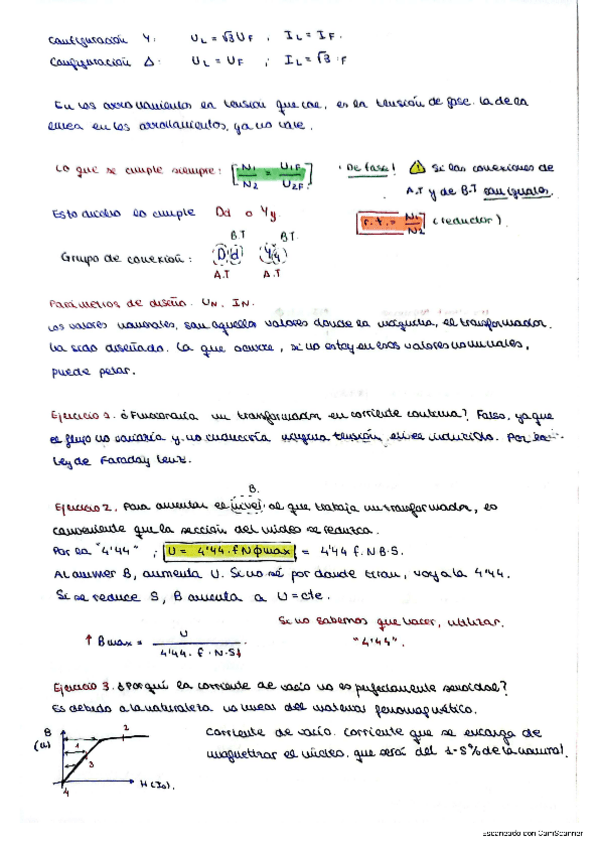 Configuración Y: UL = √3 UF , IL = IF.
Configuración Δ: UL = UF ; IL = √3 · F
En los arrollamientos la tensión que cae, es la tensión de fase. la de la
línea en los arrollamientos, ya no vale.
Lo que se cumple siempre: [N1/N2 = U1F/U2F] · De fase! ⚠ Si las conexiones de
A.T y de B.T son iguales.
Esto dicho lo cumple Dd o Yy [r.t. = N1/N2] (reductor).
B.T B.T.
Grupo de conexión: Dd Yy
A.T A.T
Parámetros de diseño. UN, IN.
Los valores nominales, son aquellos valores donde la máquina, el transformador.
ha sido diseñado. Lo que ocurre, si no estoy en esos valores nominales,
puede petar.
Ejercicio 1. ¿Funcionaría un transformador en corriente continua? Falso, ya que
el flujo no variaría y no induciría ninguna tensión en el inducido. Por la
Ley de Faraday Lenz.
B.
Ejercicio 2. Para aumentar el nivel al que trabaja un transformador, es
conveniente que la sección del núcleo se reduzca.
Por la "4'44" ; U = 4'44 · f N ϕmax = 4'44 f. N B · S.
Al aumentar B, aumenta U. Si no sé por donde tirar, voy a la 4'44.
Si se reduce S, B aumenta a U = cte.
Si no sabemos que hacer, utilizar.
"4'44".
↑ Bmax = U / 4'44 · f · N · S↓
Ejercicio 3. ¿Por qué la corriente de vacío no es perfectamente senoidal?
Es debido a la naturaleza no lineal del material ferromagnético.
B
(U)
1
2
3
4
H (I0).
Corriente de vacío. Corriente que se encarga de
magnetizar el núcleo. que será del 1-5% de la nominal.
Escaneado con CamScanner